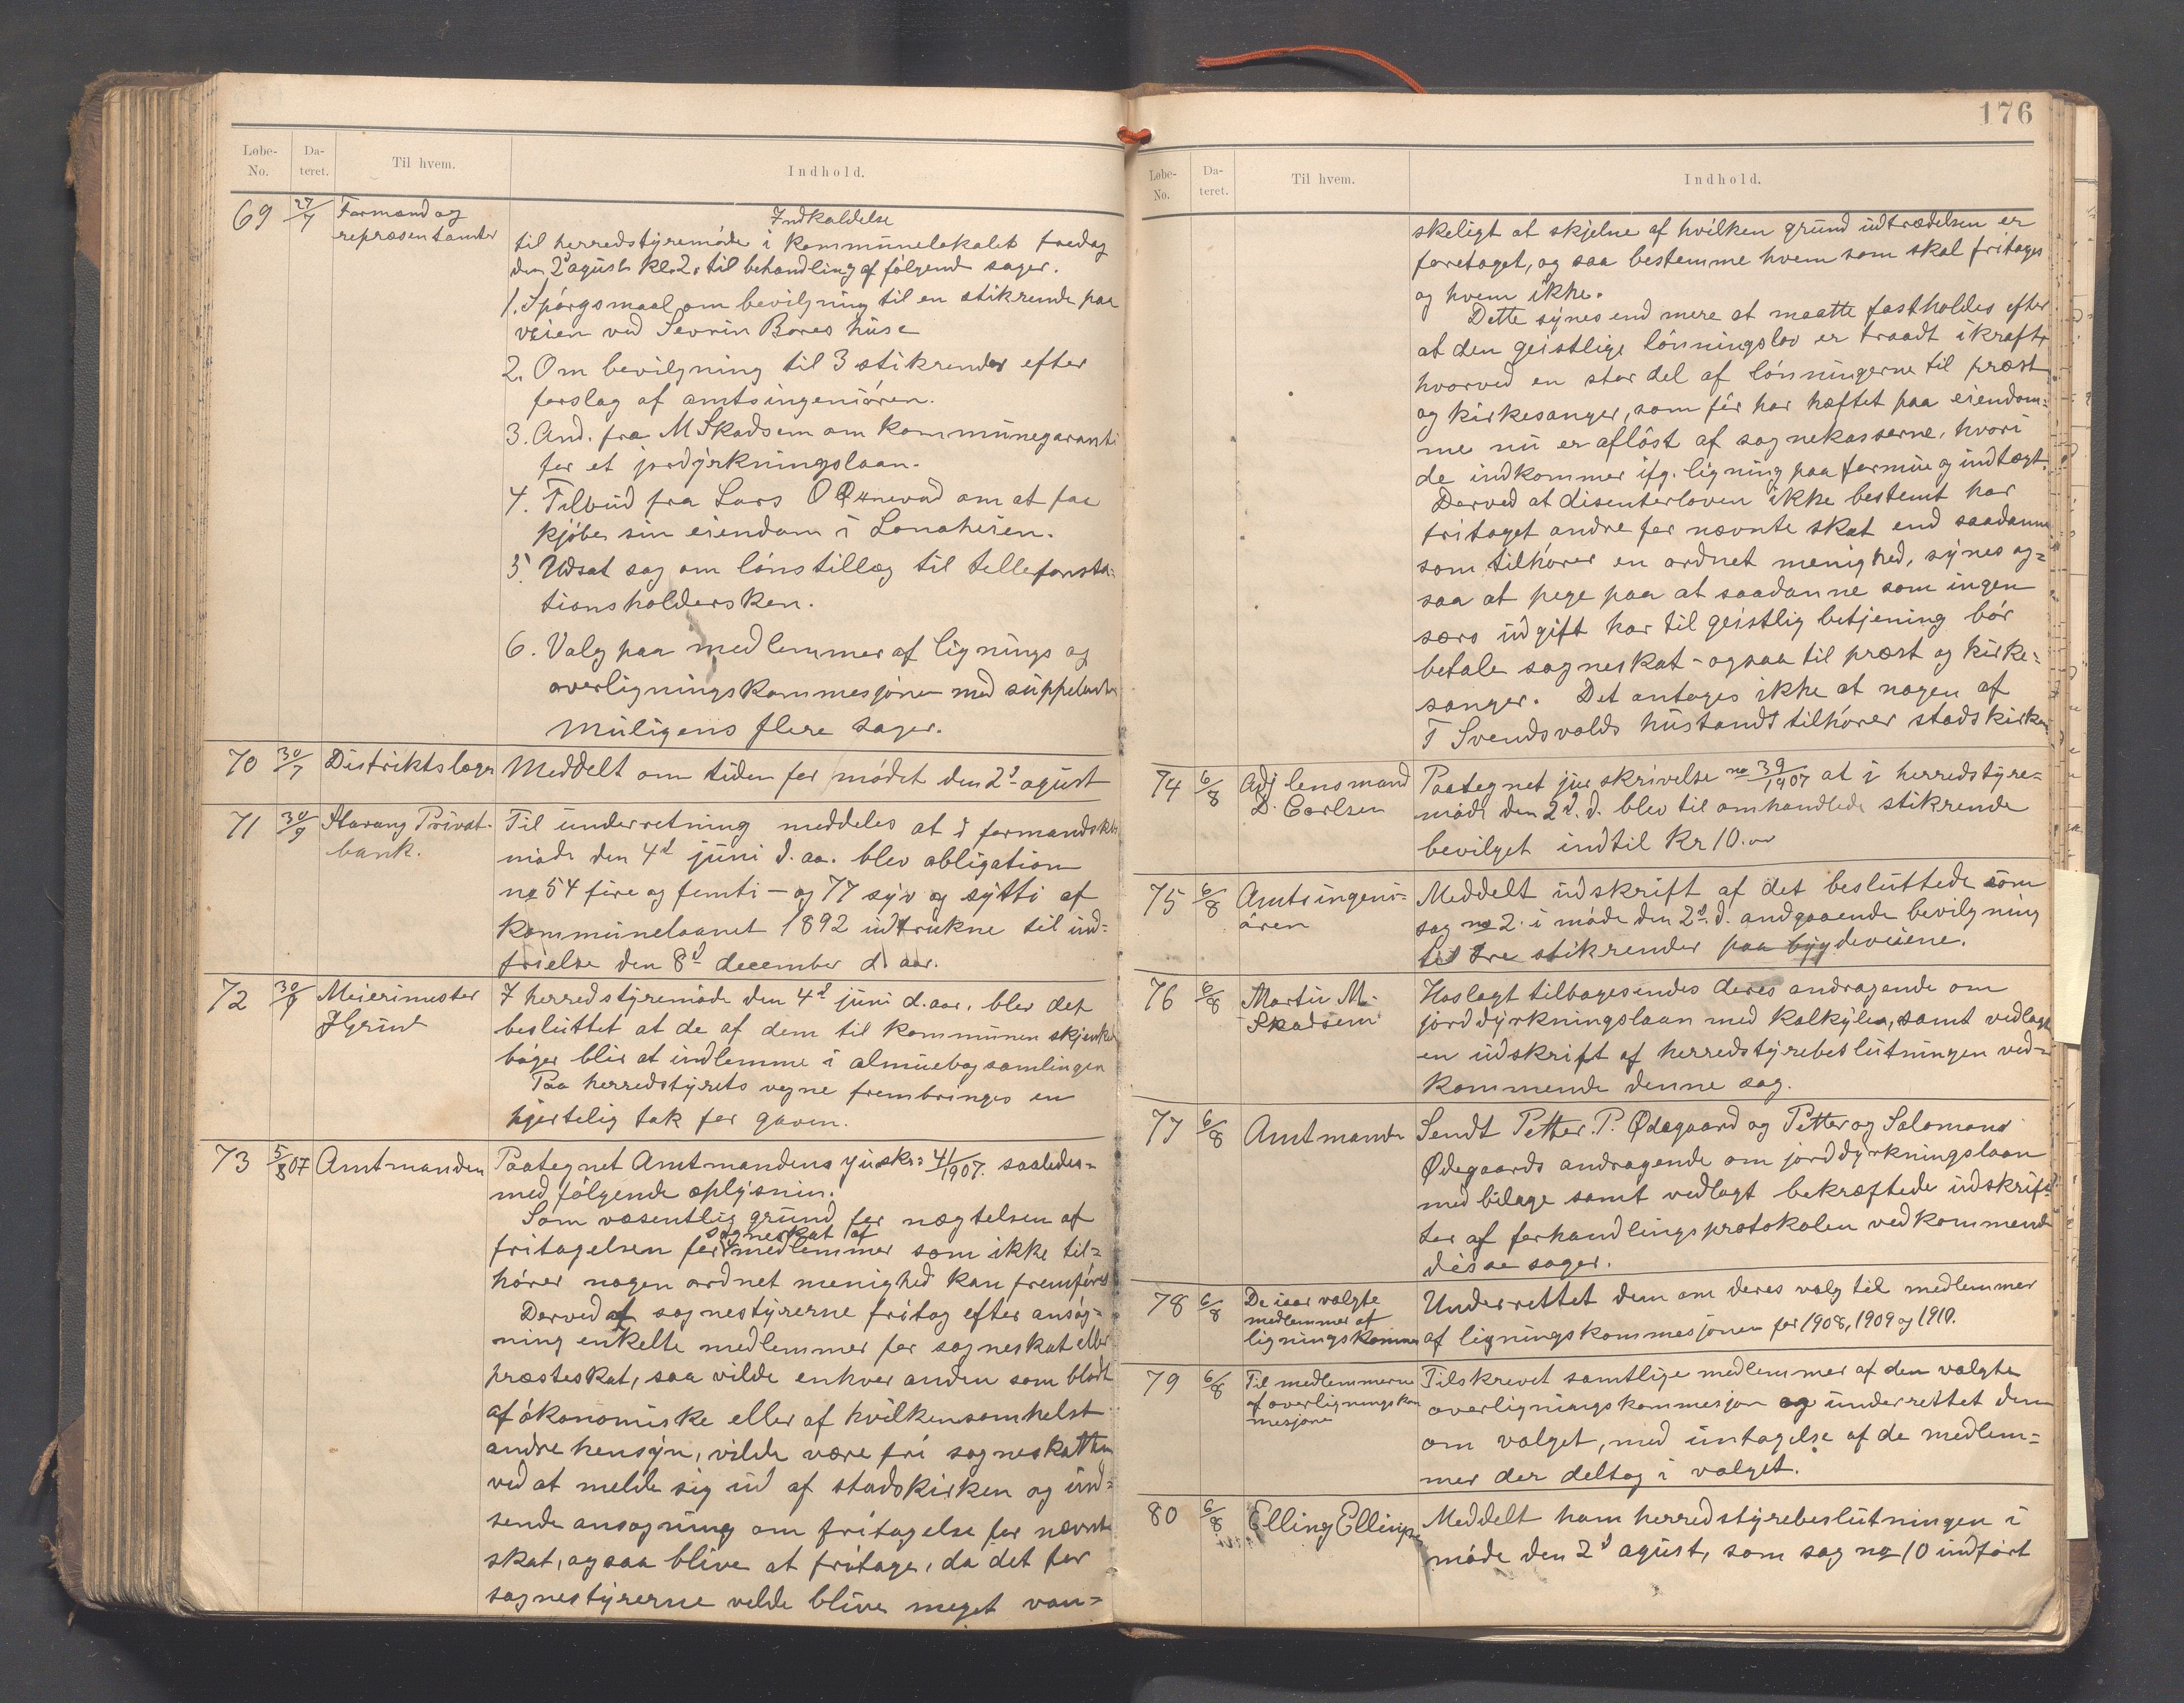 Løbe-
No.
Da-
teret.
Til hvem.
Indhold.
69
27/7
Formand og
repræsentanter
Indkaldelse
til herredstyremøde i kommunelokalet fredag
den 2d agust kl. 2, til behandling af følgende sager.
1. Spørgsmaal om bevilgning til en stikrende paa
veien ved Sevrin Bores huse
2. Om bevilgning til 3 stikrender efter
forslag af amtsingeniøren.
3. And. fra M Skadsem om kommunegaranti
for et jordyrkningslaan.
4. Tilbud fra Lars O om at faa
kjøbe sin eiendom i Lonaheien.
5. Udsat sag om lønstillæg til tellefonsta=
tionsholdersken.
6. Valg paa medlemmer af lignings og
overligningskommesjonen med suppelanter
Muligens flere sager.
70
30/7
Distriktslægen
Meddelt om tiden for mødet den 2d agust
71
30/7
Stavang Privat-
bank.
Til underretning meddeles at i formandskbs
møde den 4d juni d. aa. blev obligation
no 54 fire og femti – og 77 syv og sytti af
kommunelaanet 1892 udtrukne til ind=
frielse den 8d december d. aar.
72
30/7
Meierimester
J Grude
I herredstyremøde den 4d juni d. aar. blev det
besluttet at de af dem til kommunen skjenkede
bøger blir at indlemme i almuebogsamlingen
Paa herredstyrets vegne frembringes en
hjertelig tak for gaven.
73
5/8 07
Amtmanden
Paategnet Amtmandens 41/1907. saaledes=
med følgende oplysnin.
Som væsentlig grund for nægtelsen af
sogneskat af
fritagelsen for medlemmer som ikke til=
hører nogen ordnet menighed kan fremføres
Derved at sognestyrerne fritog efter ansøg=
ning enkelte medlemmer for sogneskat eller
præsteskat, saa vilde enhver anden som blodt
af økonomiske eller af hvilkensomhelst
andre hensyn, vilde være fri sogneskatten
ved at melde sig ud af stadskirken og ind=
sende ansogning om fritagelse for nævnte
skat, ogsaa blive at fritage, da det for
sognestyrerne velde blive meget van=
176
Løbe-
No.
Da-
teret.
Til hvem.
Indhold.
skeligt at skjelne af hvilken grund udtrædelsen er
foretaget, og saa bestemme hvem som skal fritages
og hvem ikke.
Dette synes end mere at maatte fastholdes efter
at den geistlige lønningslov er traadt ikraft,
hvorved en stor del af lønningerne til præst
og kirkesanger, som før har hæftet paa eiendom=
me nu er afløst af sognekasserne, hvori
de indkommer ifg. ligning paa formue og indtægt.
Derved at disenterloven ikke bestemt har
fritaget andre for nævnte skat end saadanne
som tilhører en ordnet menighed, synes og=
saa at pege paa at saadanne som ingen
særs udgift har til geistlig betjening bør
betale sogneskat – ogsaa til præst og kirke=
sanger. Det antages ikke at nogen af
T Svendsvolds hustandt tilhører stadskirken
74
6/8
Adj lensmand
D. Carlsen
Paategnet skrivelse no 39/1907 at i herredstyre=
møde den 2d. d. blev til omhandlede stikrende
bevilget indtil Kr 10.00
75
6/8
Amtsingeni=
øren
Meddelt udskrift af det besluttede som
sag no 2. i møde den 2d. d. andgaaende bevilgning
til tre stikrender paa bygdeveiene.
76
6/8
Martin M.
Skadsem
Hoslagt tilbagesendes deres andragende om
jorddyrkningslaan med kalkyle, samt vedlagt
en udskrift af herredstyrebeslutningen ved=
kommende denne sag.
77
6/8
Amtmanden
Sendt Petter. P. Ødegaard og Petter og Salomand
Ødegaards andragende om jorddyrkningslaan
med bilage samt vedlagt bekræftede udskrif=
ter af forhandlingsprotokolen vedkommende
disse sager.
78
6/8
De iaar valgte
medlemmer af
ligningskommes
Underrettet dem om deres valg til medlemmer
af ligningskommesjonen for 1908, 1909 og 1910.
79
6/8
Til medlemmerne
af overligningskom
mesjonen
Tilskrevet samtlige medlemmer af den valgte
overligningskommesjon og underrettet dem
om valget, med untagelse af de medlem=
mer der deltog i valget.
80
6/8
Elling Ellingsen
Meddelt ham herredstyrebeslutningen i
møde den 2d agust, som sag no 10 indført